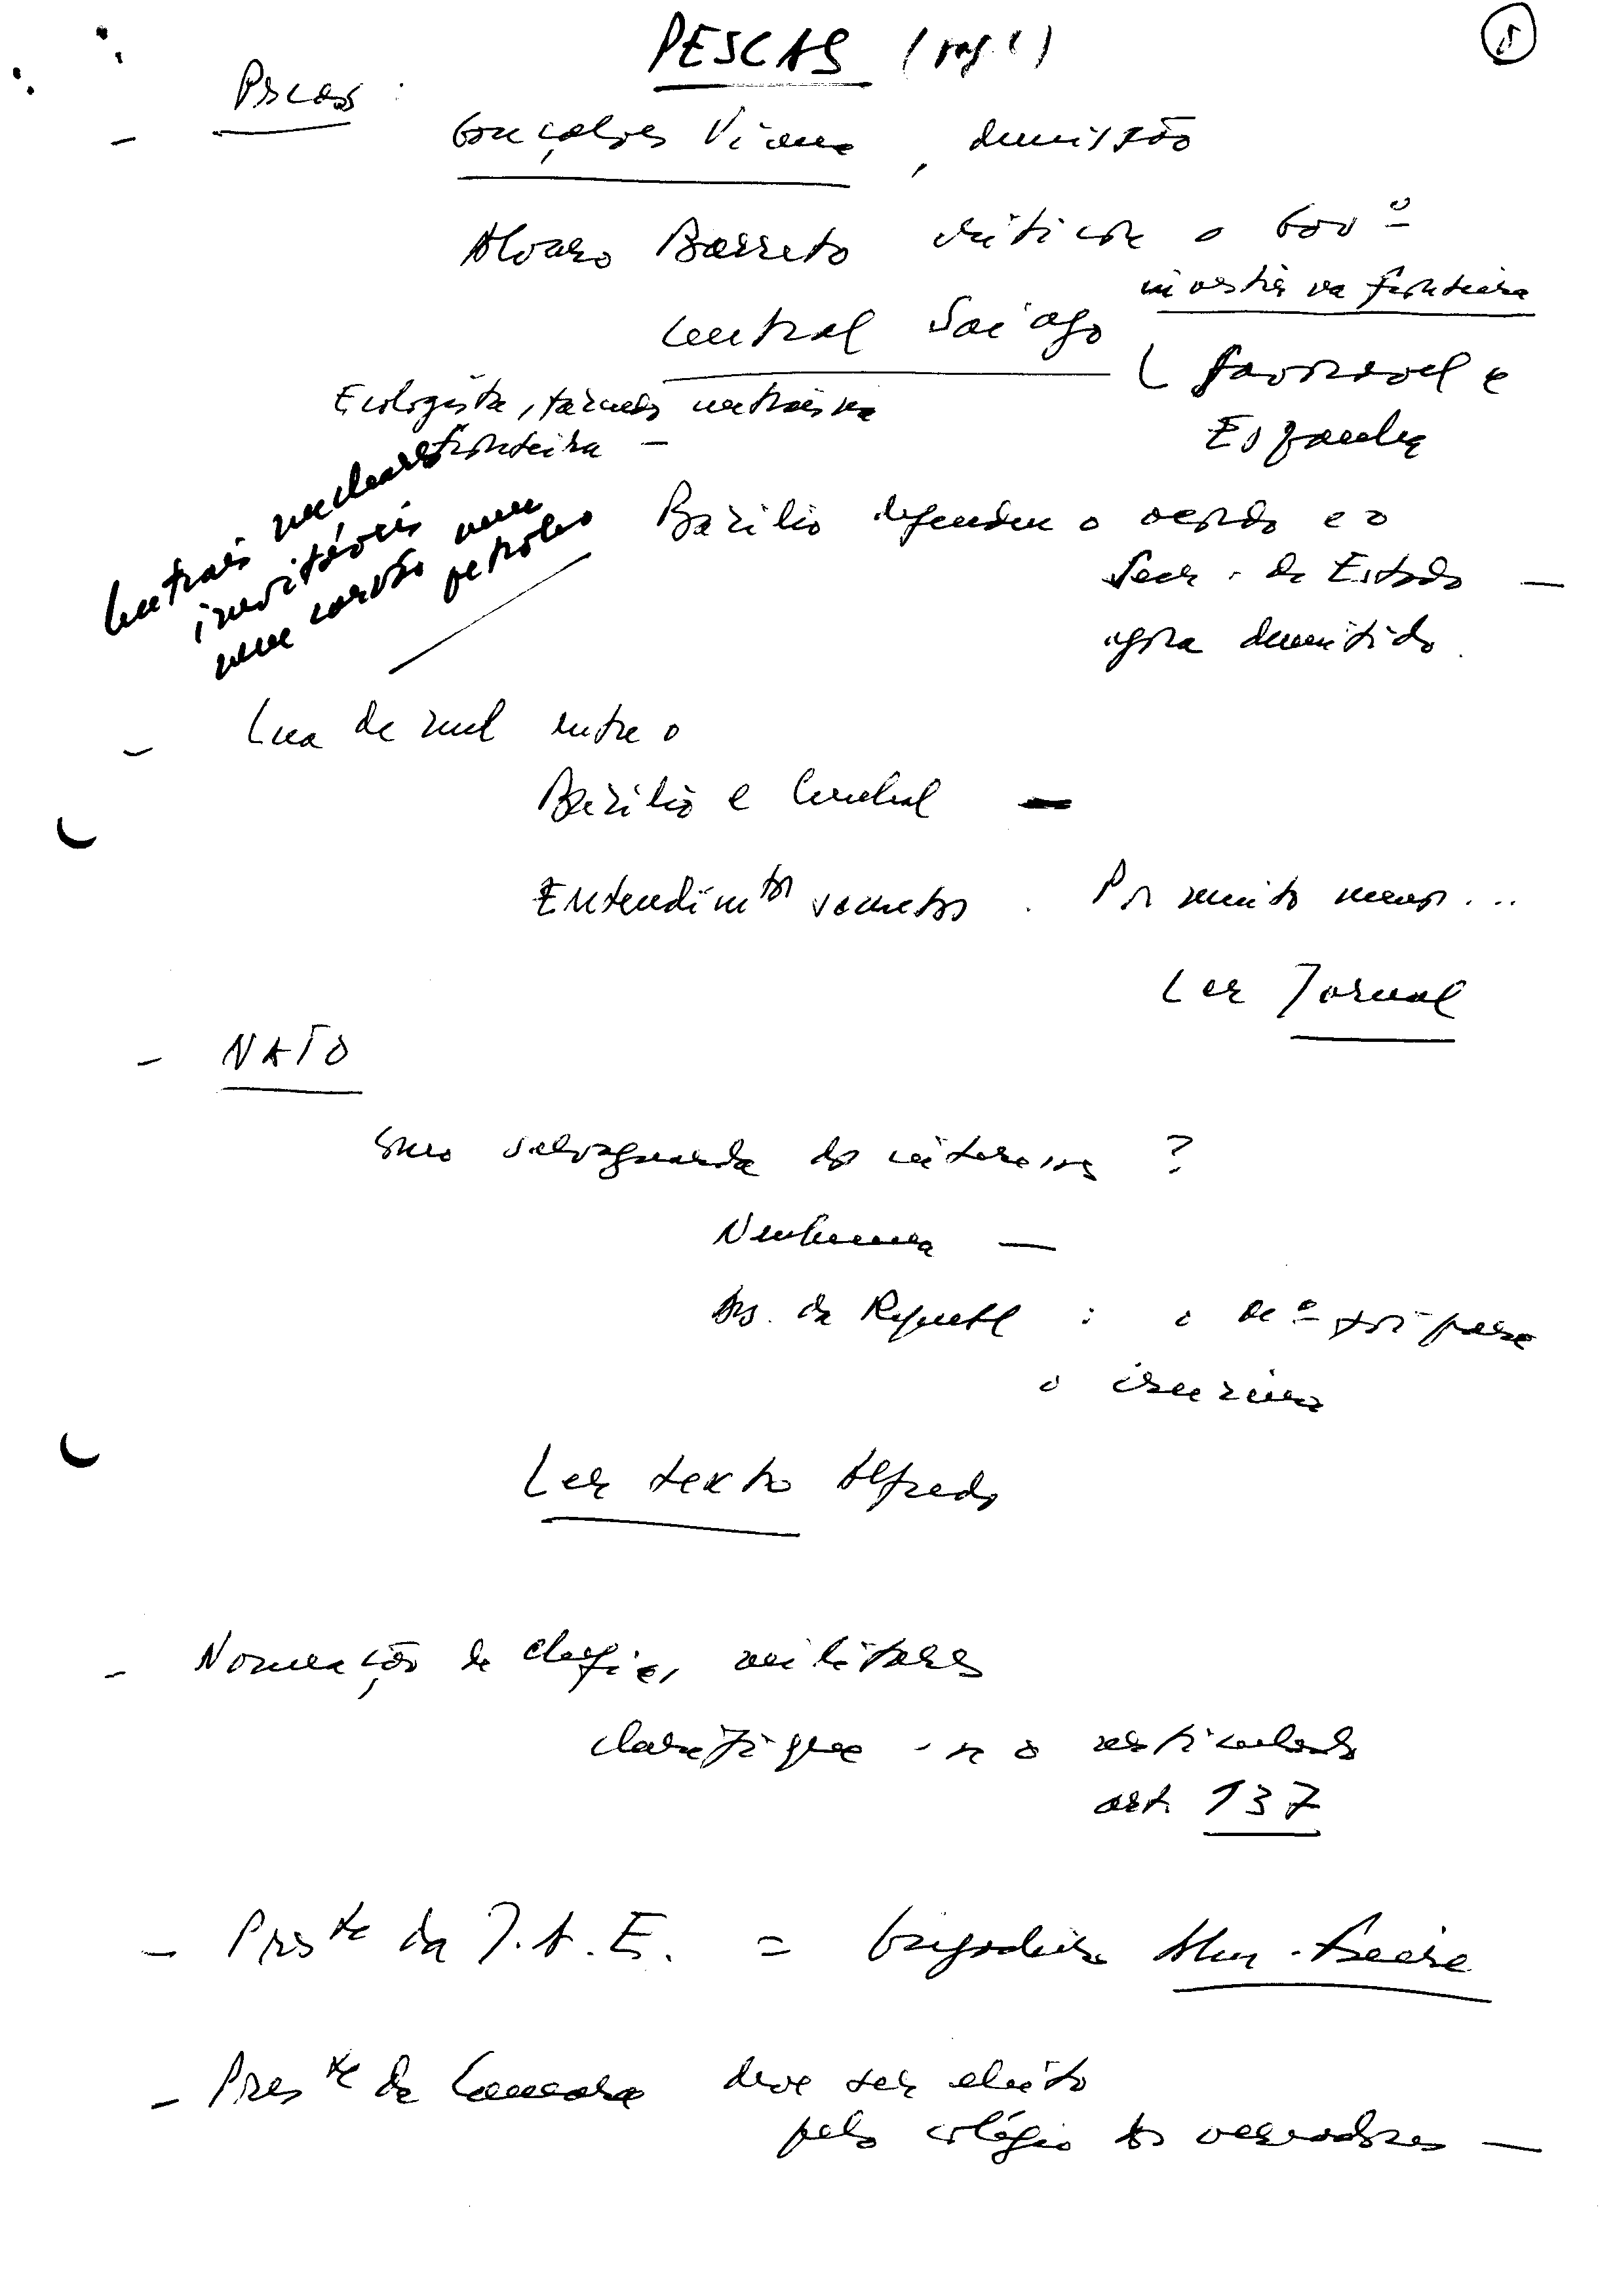 PESCAS (pag. 1)
- Pescas :
Gonçalves Viana, demissão
Alvaro Barreto critica o Gov.º
central Saiago
na fronteira
( favoravel a
Espanha
Ecologista, centrais na
fronteira -
Centrais nucleares
inevitáveis nem
nem carvão petroleo
Bazilio defendeu o acordo e o
Secr. de Estado -
agora demitido.
- Lua de mel entre o
Bazilio e Cunhal -
Entendimtos secretos. Por muito menos...
Ler Jornal
- NATO
salvaguarda dos interesses ?
Nenhuma -
As. da Republ :
Ler texto Alfredo
- Nomeação de chefias militares
clarifique-se o articulado
art. 137
- Preste da J.A.E. = brigadeiro Alm. Freire
- Preste da Camara deve ser eleito
pelo colégio dos vereadores -